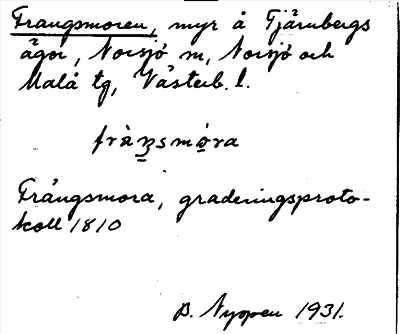 Frangsmoren, myr å Tjärnbergs
ägor, Norsjö sn, Norsjö och
Malå tg, Västerb. l.
fràŋsmóra
Frångsmora, graderingsproto-
koll 1810
B. Nyppen 1931.